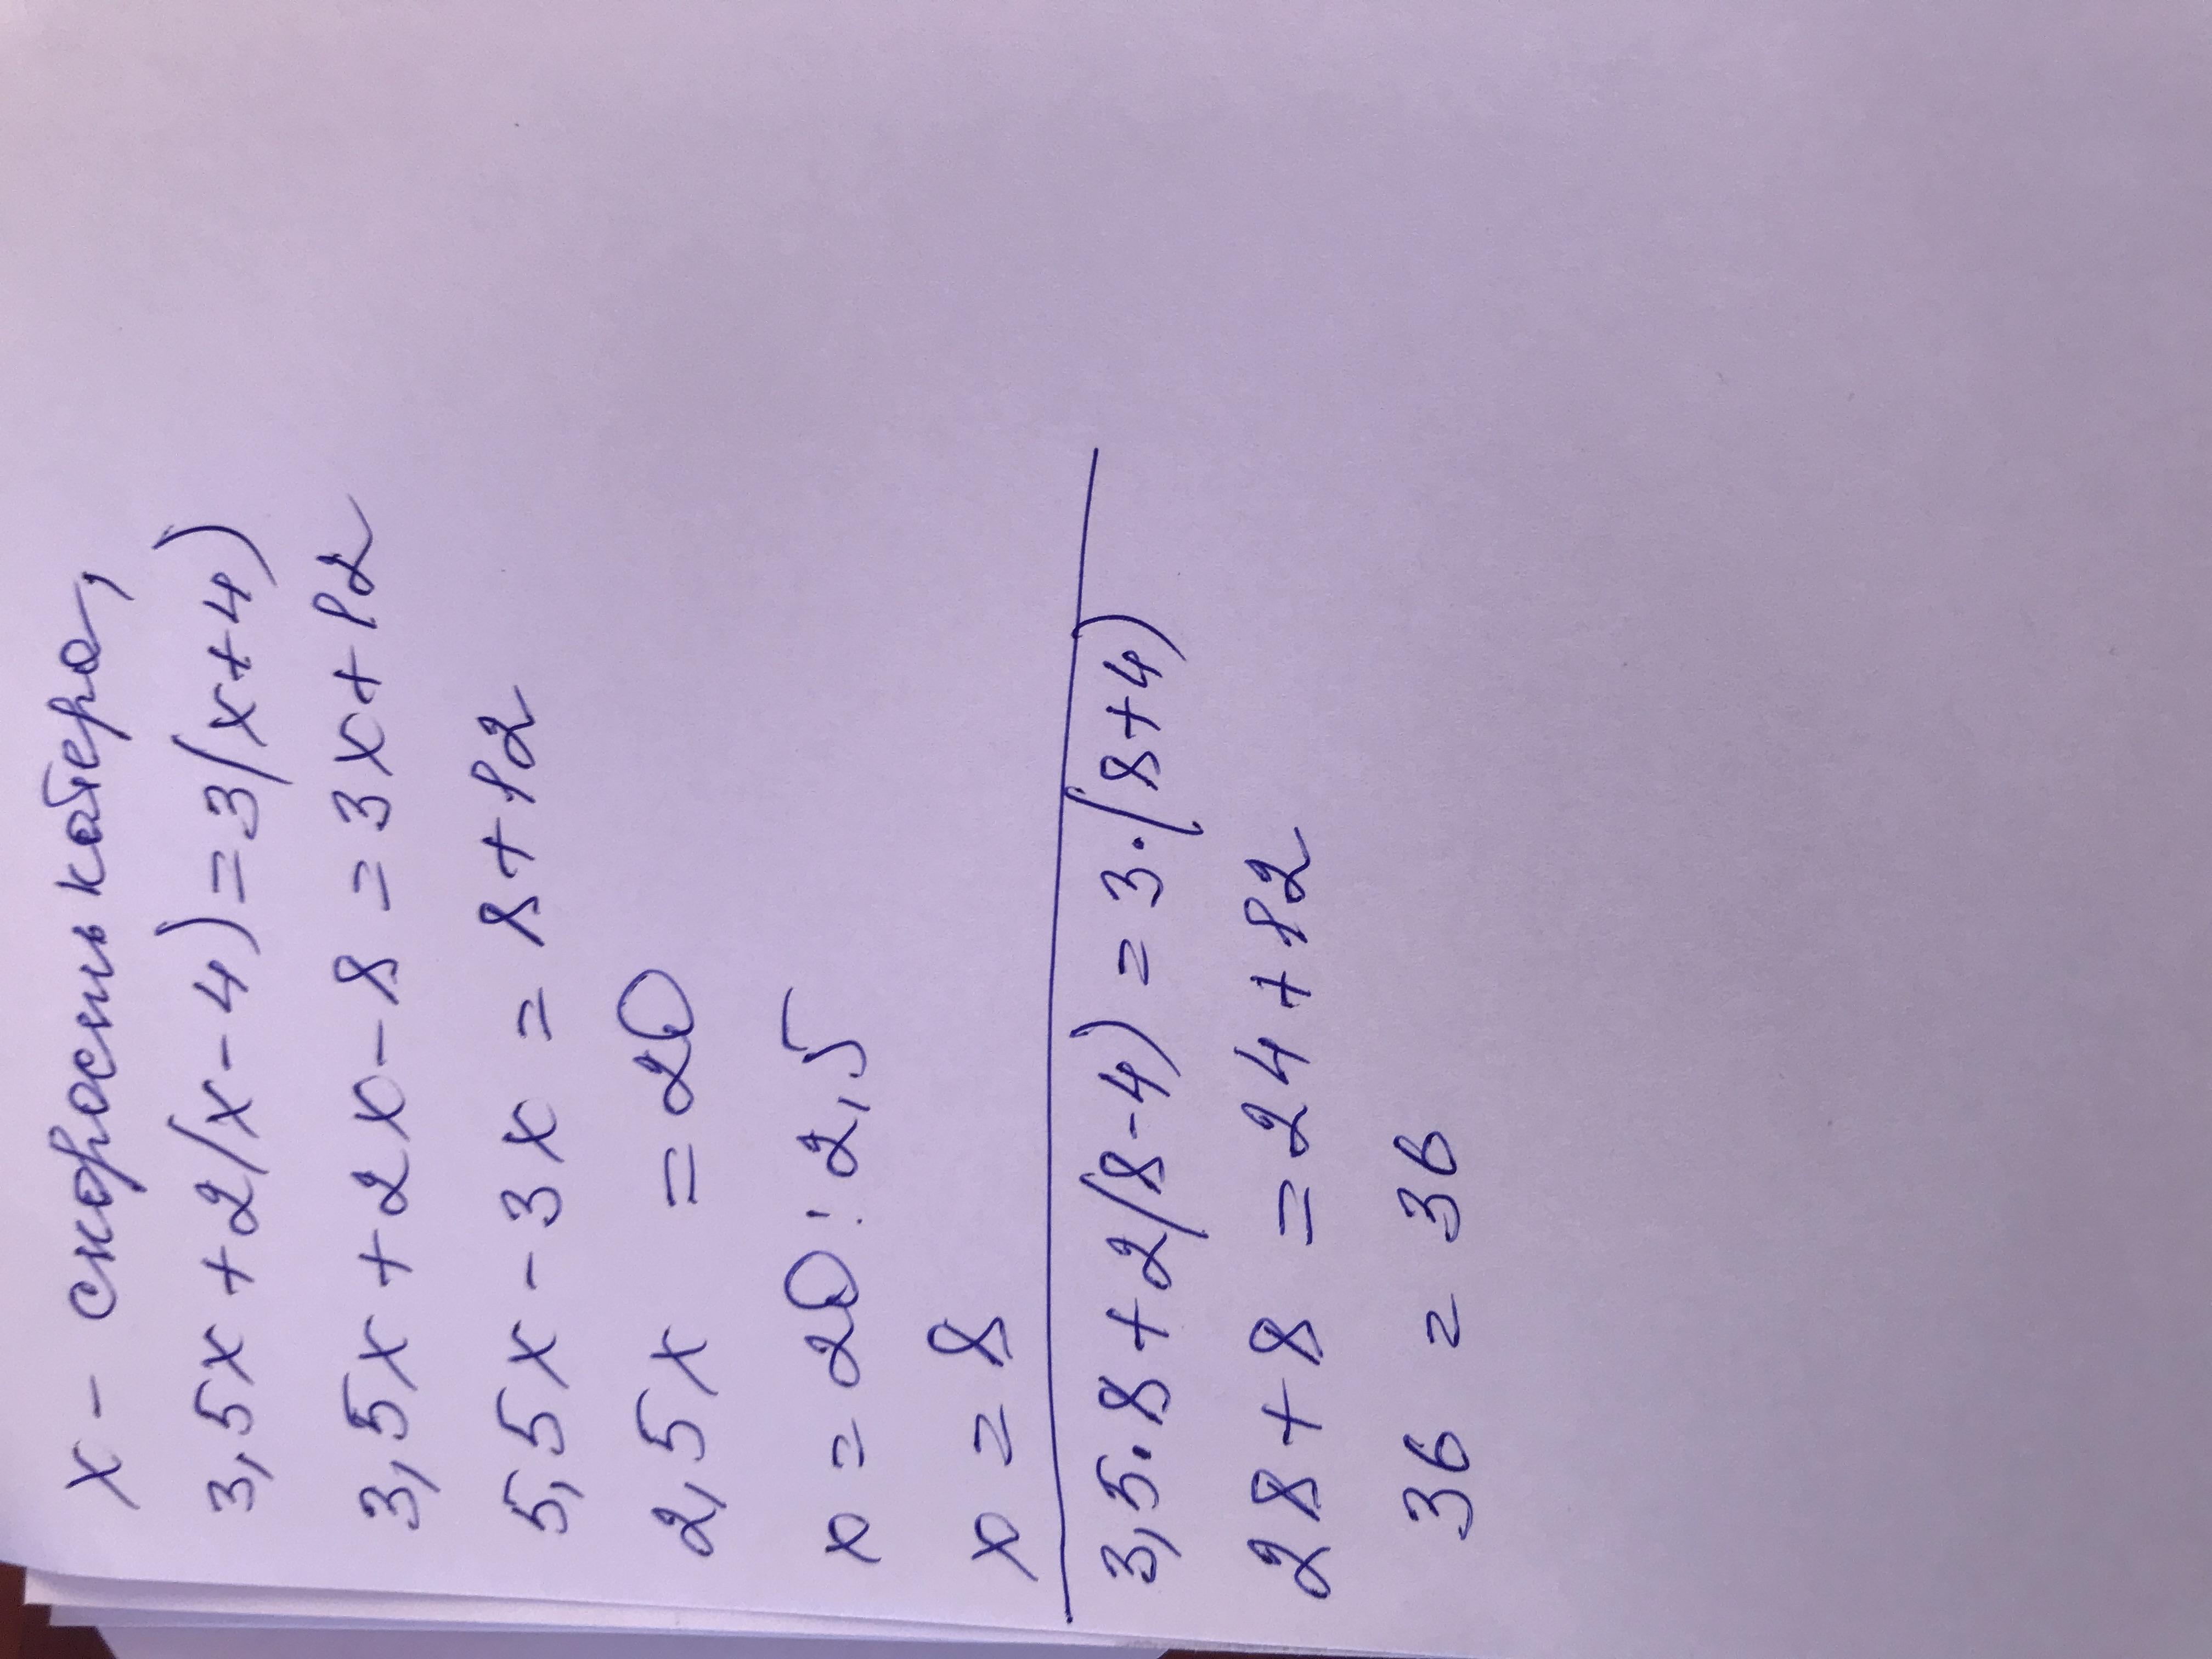 x - скорость катера,
3,5x + 2(x-4) = 3(x+4)
3,5x + 2x - 8 = 3x + 12
5,5x - 3x = 8 + 12
2,5x = 20
x = 20 : 2,5
x = 8
3,5·8 + 2(8-4) = 3·(8+4)
28 + 8 = 24 + 12
36 = 36